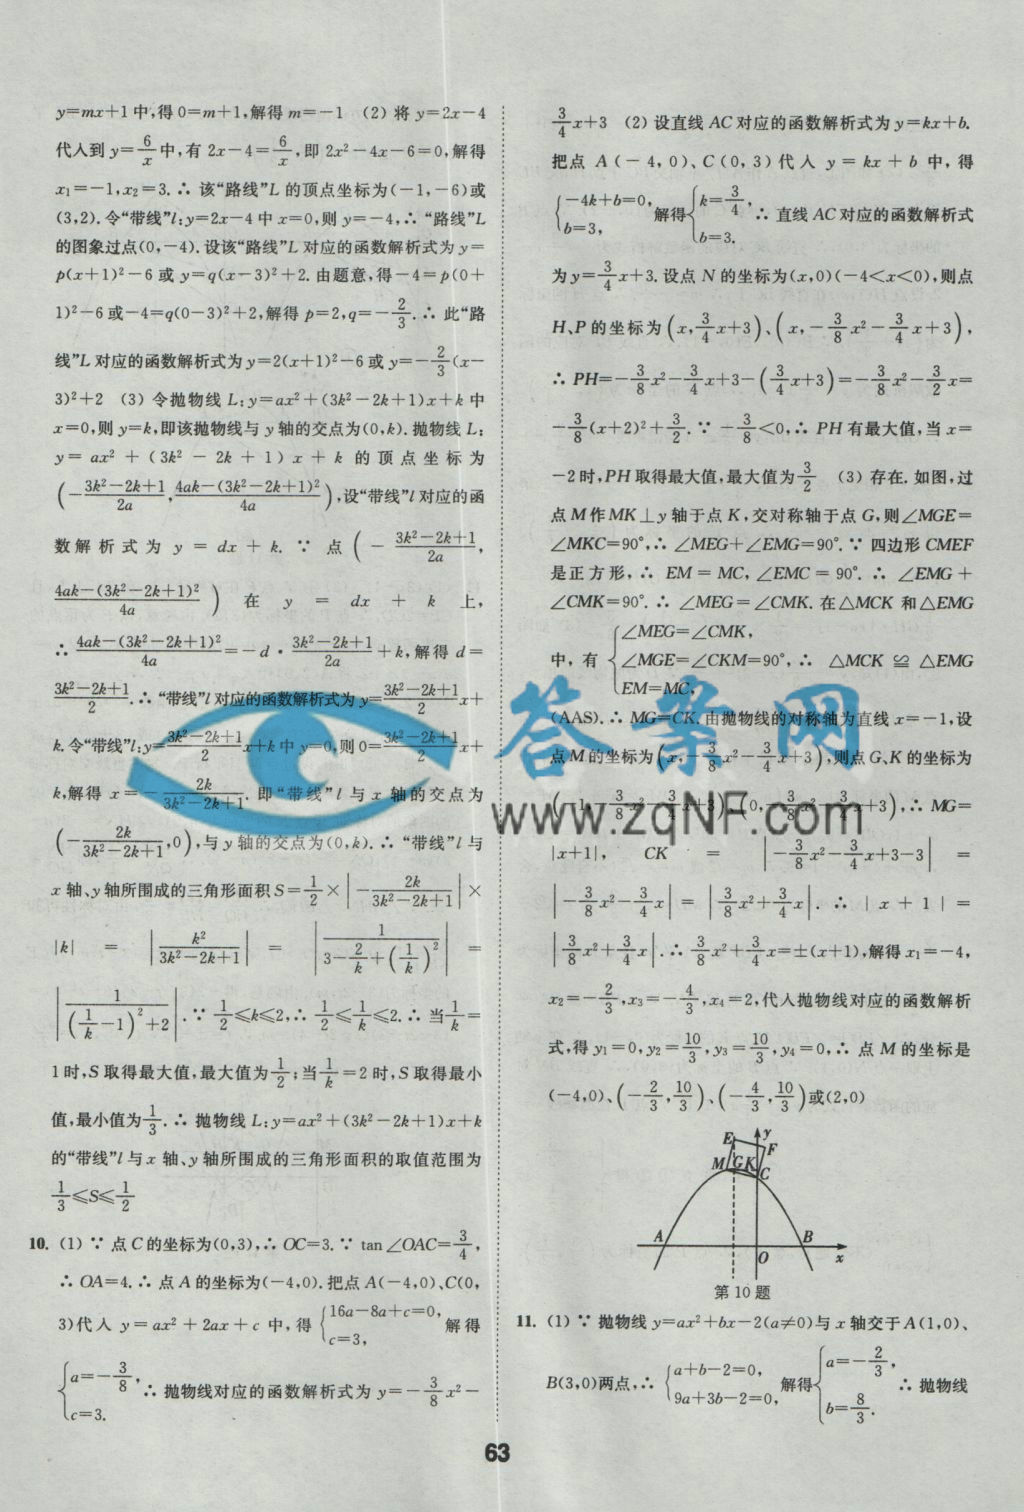 y=mx+1中,得0=m+1,解得m=-1 (2) 将 y=2x-4
代入到y=6/x中,有 2x-4=6/x,即2x²-4x-6=0,解得
x₁=-1,x₂=3.∴ 该“路线”L 的顶点坐标为(-1,-6)或
(3,2).令“带线”l:y=2x-4 中 x=0,则 y=-4,∴ “路线”L
的图象过点(0,-4).设该“路线”L 对应的函数解析式为 y=
p(x+1)²-6 或 y=q(x-3)²+2.由题意,得-4=p(0+
1)²-6或-4=q(0-3)²+2,解得 p=2,q=-2/3.∴ 此“路
线”L 对应的函数解析式为 y=2(x+1)²-6 或 y=-2/3(x-
3)²+2 (3) 令抛物线 L:y=ax²+(3k²-2k+1)x+k 中
x=0,则 y=k,即该抛物线与 y 轴的交点为(0,k).抛物线 L:
y= ax² + (3k² - 2k + 1) x + k 的顶点坐标为
(-(3k²-2k+1)/2a,(4ak-(3k²-2k+1)²)/4a),设“带线”l 对应的函
数解析式为 y = dx + k. ∵ 点 (-(3k²-2k+1)/2a,
(4ak-(3k²-2k+1)²)/4a) 在 y = dx + k 上,
∴ (4ak-(3k²-2k+1)²)/4a=-d·(3k²-2k+1)/2a+k,解得 d=
(3k²-2k+1)/2.∴ “带线”l 对应的函数解析式为 y=(3k²-2k+1)/2 x+
k.令“带线”l:y=(3k²-2k+1)/2 x+k 中 y=0,则 0=(3k²-2k+1)/2 x+
k,解得 x=-2k/(3k²-2k+1).即“带线”l 与 x 轴的交点为
(-2k/(3k²-2k+1),0),与 y 轴的交点为(0,k).∴ “带线”l 与
x 轴、y 轴所围成的三角形面积 S=1/2×|-2k/(3k²-2k+1)|×
|k| = |k²/(3k²-2k+1)| = |1/(3-2/k+(1/k)²)| =
|1/((1/k-1)²+2)|.∵ 1/2≤k≤2,∴ 1/2≤1/k≤2.∴ 当1/k=
1时,S 取得最大值,最大值为1/2;当1/k=2 时,S 取得最小
值,最小值为1/3.∴ 抛物线 L:y=ax²+(3k²-2k+1)x+k
的“带线”l 与 x 轴、y 轴所围成的三角形面积的取值范围为
1/3≤S≤1/2
10. (1) ∵ 点 C 的坐标为(0,3),∴ OC=3.∵ tan∠OAC=3/4,
∴ OA=4.∴ 点 A 的坐标为(-4,0).把点 A(-4,0)、C(0,
3)代入 y=ax²+2ax+c 中,得 {16a-8a+c=0, c=3, 解得
{a=-3/8, c=3. ∴ 抛物线对应的函数解析式为 y=-3/8x²-
3/4x+3 (2) 设直线 AC 对应的函数解析式为 y=kx+b.
把点 A(-4,0)、C(0,3)代入 y=kx+b 中,得
{-4k+b=0, b=3, 解得{k=3/4, b=3. ∴ 直线 AC 对应的函数解析式
为 y=3/4x+3.设点 N 的坐标为(x,0)(-4<x<0),则点
H、P 的坐标为(x,3/4x+3)、(x,-3/8x²-3/4x+3),
∴ PH=-3/8x²-3/4x+3-(3/4x+3)=-3/8x²-3/2x=
-3/8(x+2)²+3/2.∵ -3/8<0,∴ PH 有最大值,当 x=
-2时,PH 取得最大值,最大值为3/2 (3) 存在.如图,过
点 M 作 MK⊥y 轴于点 K,交对称轴于点 G,则∠MGE=
∠MKC=90°,∴ ∠MEG+∠EMG=90°.∵ 四边形 CMEF
是正方形,∴ EM=MC,∠EMC=90°.∴ ∠EMG+
∠CMK=90°.∴ ∠MEG=∠CMK.在△MCK 和△EMG
中,有 {∠MEG=∠CMK, ∠MGE=∠CKM=90°, EM=MC, ∴ △MCK ≌ △EMG
(AAS).∴ MG=CK.由抛物线的对称轴为直线 x=-1,设
点 M 的坐标为(x,-3/8x²-3/4x+3),则点 G、K 的坐标为
(-1,-3/8x²-3/4x+3)、(0,-3/8x²-3/4x+3),∴ MG=
|x+1|, CK = |-3/8x²-3/4x+3-3| =
|-3/8x²-3/4x| = |3/8x²+3/4x|.∴ |x+1| =
|3/8x²+3/4x|.∴ 3/8x²+3/4x=±(x+1),解得 x₁=-4,
x₂=-2/3,x₃=-4/3,x₄=2,代入抛物线对应的函数解析
式,得 y₁=0,y₂=10/3,y₃=10/3,y₄=0,∴ 点 M 的坐标是
(-4,0)、(-2/3,10/3)、(-4/3,10/3)或(2,0)
E
y
F
M
G
K
C
A
O
B
x
第10题
11. (1) ∵ 抛物线 y=ax²+bx-2(a≠0)与 x 轴交于 A(1,0)、
B(3,0)两点,∴ {a+b-2=0, 9a+3b-2=0, 解得{a=-2/3, b=8/3. ∴ 抛物线
63
答案网
www.zqNF.com